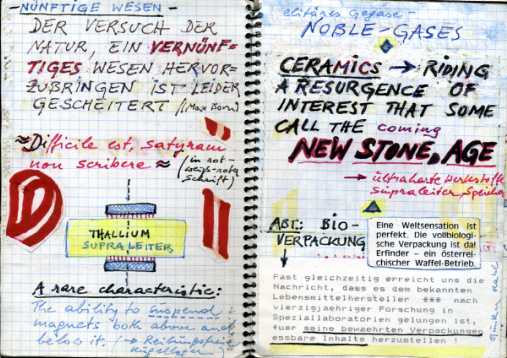 - NÜNFTIGE WESEN -
DER VERSUCH DER
NATUR, EIN VERNÜNF=
TIGES WESEN HERVOR=
ZUBRINGEN IST LEIDER
GESCHEITERT / (Max Born)
≈ Difficile est, satyram
non scribere ≈ (in rot-
weiß-roter
Schrift)
THALLIUM
SUPRALEITER
A rare characteristic:
The ability to suspend
magnets both above and
below it. /
elitäres Gegase -
NOBLE-GASES
CERAMICS → RIDING
A RESURGENCE OF
INTEREST THAT SOME
CALL THE coming
NEW STONE AGE
→ ultraharte Werkstoffe
Supraleiter, Speicher
ABT: BIO-
VERPACKUNG
Eine Weltsensation ist
perfekt. Die vollbiologi-
sche Verpackung ist da!
Erfinder – ein österrei-
chischer Waffel-Betrieb.
Fast gleichzeitig erreicht uns die
Nachricht, dass es dem bekannten
Lebensmittelhersteller *** nach
vierzigjaehriger Forschung in
Speziallaboratorien gelungen ist,
fuer seine bewaehrten Verpackungen
essbare Inhalte herzustellen!